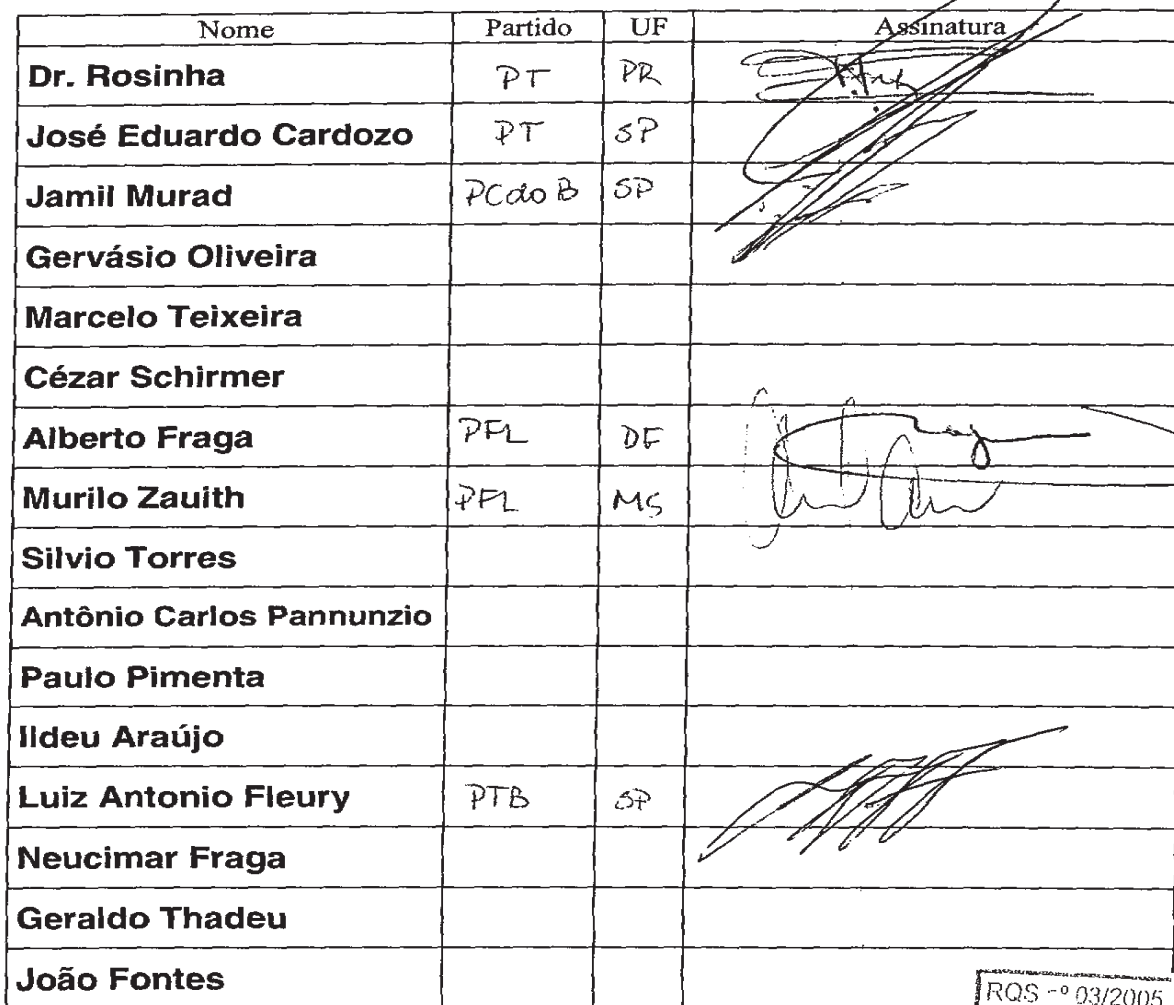 Nome Partido UF Assinatura
Dr. Rosinha PT PR
José Eduardo Cardozo PT SP
Jamil Murad PCdoB SP
Gervásio Oliveira
Marcelo Teixeira
Cézar Schirmer
Alberto Fraga PFL DF
Murilo Zauith PFL MS
Silvio Torres
Antônio Carlos Pannunzio
Paulo Pimenta
Ildeu Araújo
Luiz Antonio Fleury PTB SP
Neucimar Fraga
Geraldo Thadeu
João Fontes
RQS nº 03/2005